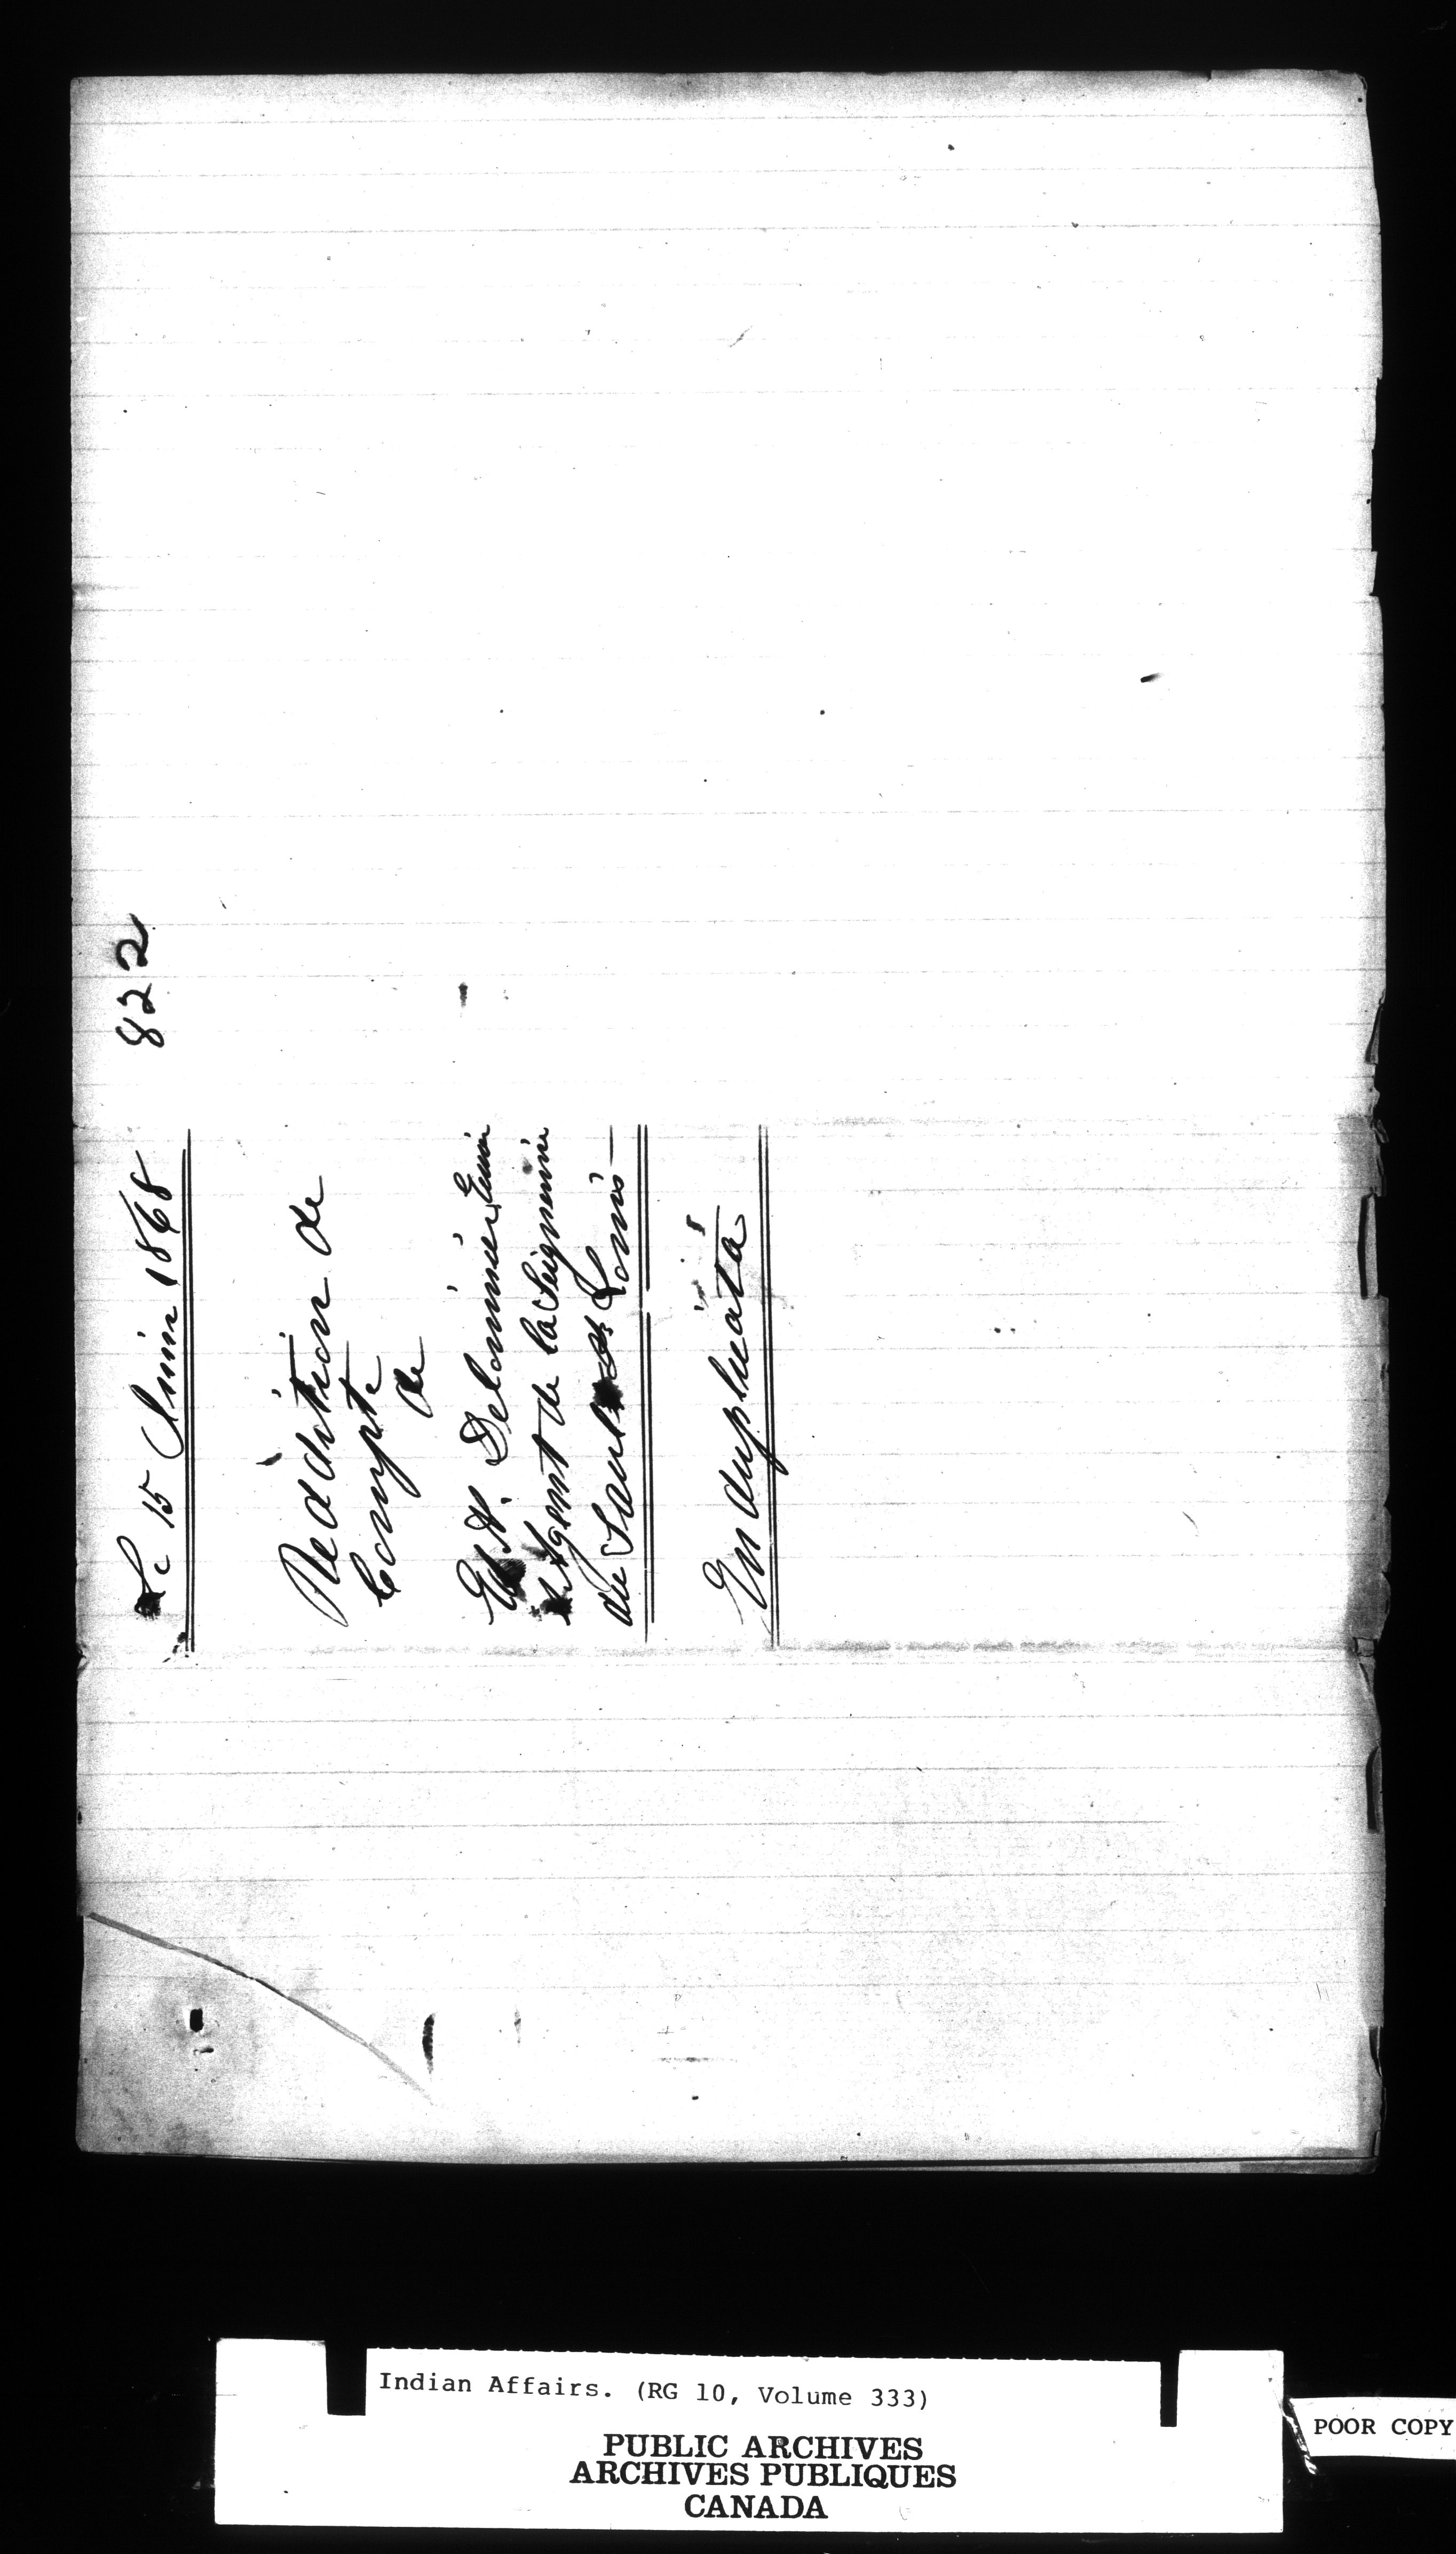 822
Le 15 Juin 1868
Reddition de
Compte
de
E. N. Delorimier, Ecuier
Agent de la Seigneurie
du Sault St Louis
En duplicata
Indian Affairs. (RG 10, Volume 333)
PUBLIC ARCHIVES
ARCHIVES PUBLIQUES
CANADA
POOR COPY